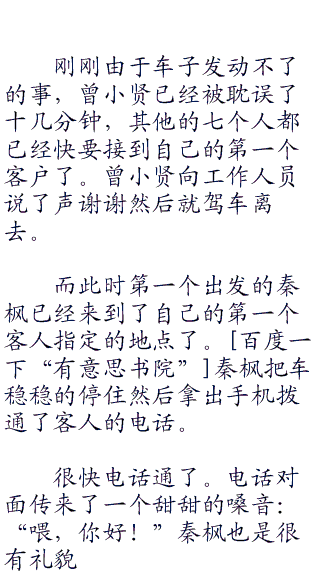 刚刚由于车子发动不了
的事，曾小贤已经被耽误了
十几分钟，其他的七个人都
已经快要接到自己的第一个
客户了。曾小贤向工作人员
说了声谢谢然后就驾车离
去。
而此时第一个出发的秦
枫已经来到了自己的第一个
客人指定的地点了。[百度一
下“有意思书院”]秦枫把车
稳稳的停住然后拿出手机拨
通了客人的电话。
很快电话通了。电话对
面传来了一个甜甜的嗓音：
“喂，你好！”秦枫也是很
有礼貌